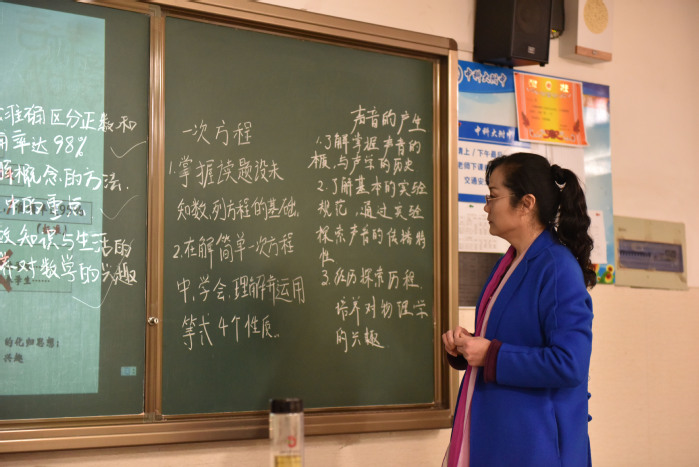 准确区分正数和
率达98%
概念的方法.
中的重点
知识与生活的
对数学的兴趣
的化归思想;
兴趣
一次方程
1.掌握读题设未
知数,列方程的基础.
2.在解简单一次方程
中,学会,理解并运用
等式4个性质.
声音的产生
1.了解掌握声音的
概.与声学的历史
2.了解基本的实验
规范,通过实验
探索声音的传播特
性
3.经历探索历程,
培养对物理学
的兴趣.
中科大附中
中科大附中